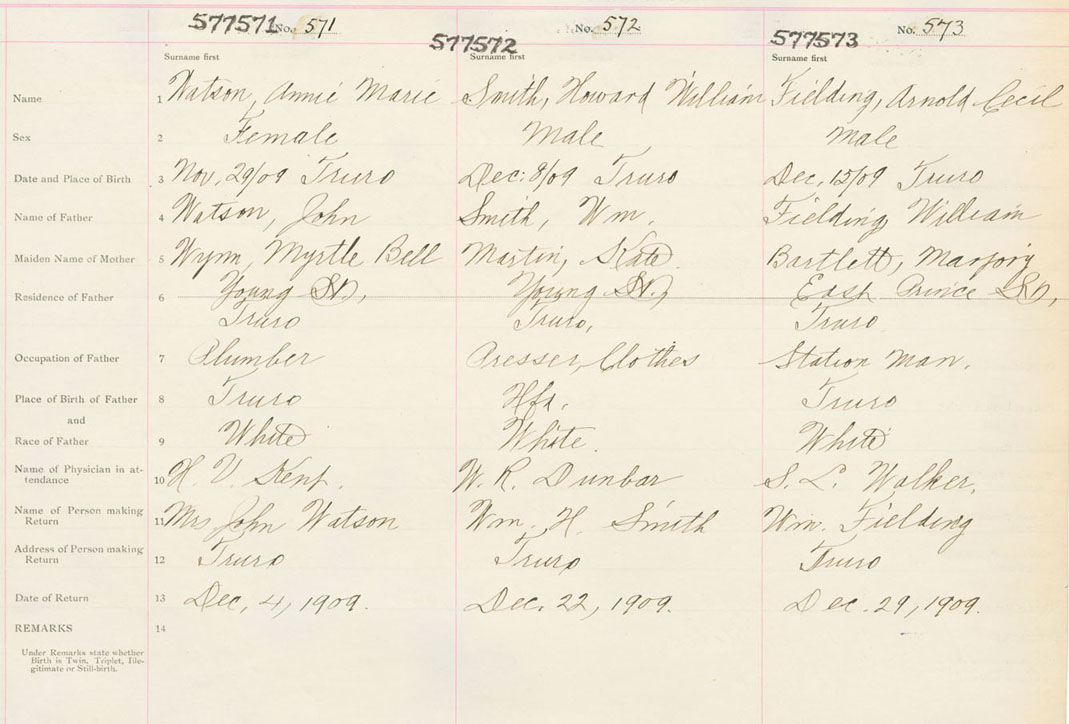 577571 No. 571 577572 No. 572 577573 No. 573
Surname first Surname first Surname first
Name 1 Watson, Annie Marie Smith, Howard William Fielding, Arnold Cecil
Sex 2 Female Male Male
Date and Place of Birth 3 Nov, 29/09 Truro Dec: 8/09 Truro Dec, 15/09 Truro
Name of Father 4 Watson, John Smith, Wm. Fielding, William
Maiden Name of Mother 5 Wynn, Myrtle Bell Martin, Kate Bartlett, Marjory
Residence of Father 6 Young St, Young St, East Prince St,
Truro Truro, Truro
Occupation of Father 7 Plumber Presser, Clothes Station Man.
Place of Birth of Father 8 Truro Hfx. Truro
and
Race of Father 9 White White. White
Name of Physician in at-
tendance 10 H. V. Kent. W. R. Dunbar S. L. Walker.
Name of Person making
Return 11 Mrs John Watson Wm. H. Smith Wm. Fielding
Address of Person making
Return 12 Truro Truro Truro
Date of Return 13 Dec, 4, 1909. Dec. 22, 1909. Dec. 29, 1909.
REMARKS 14
Under Remarks state whether
Birth is Twin, Triplet, Ille-
gitimate or Still-birth.